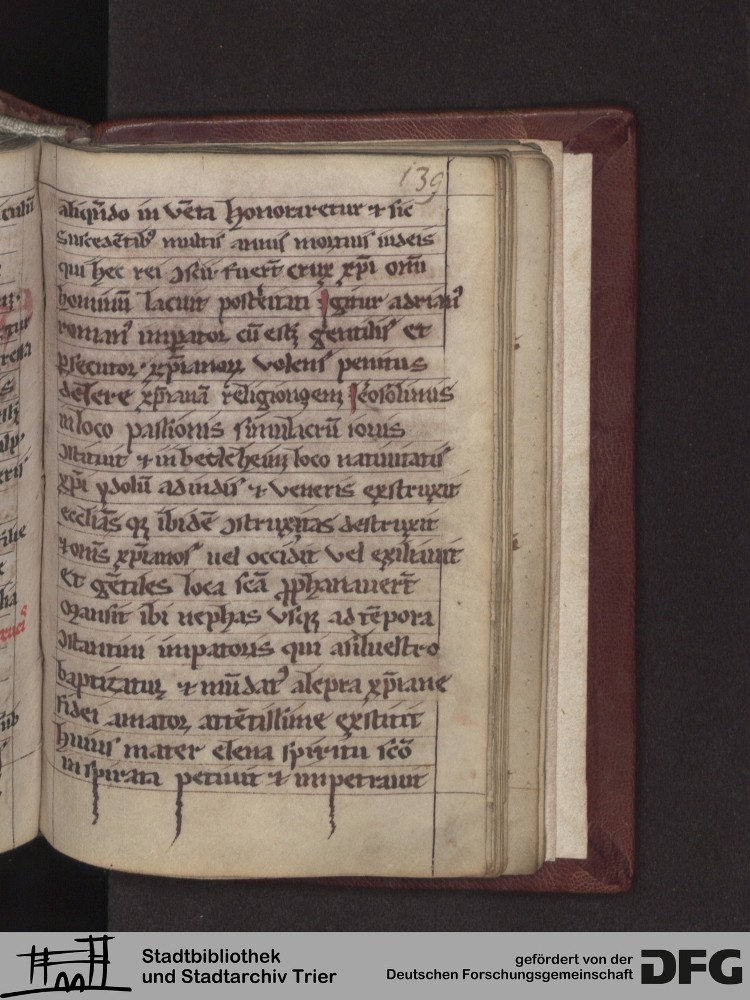 139
aliqn̄do in vēta honoraretur ⁊ sic
Succedētib' multis annis mortuis iudeis
qui hec rei ↄscii fuer̄t crux xp̄i om̄
hominū latuit posteritati igitur adrian'
roman' imp̄ator cū eēt gentilis et
p̄secutor xp̄ianoꝝ volens penitus
delere xp̄ianā religionem ierosolimis
in loco passionis simulacrū iouis
ↄstituit ⁊ in betleheim loco natiuitatis
xp̄i ydolū adindis ⁊ veneris exstruxit
ecclīas qꝫ ibidē ↄstruxtas destruxit
⁊ om̄s xp̄ianos uel occidit vel exiliauit
Et gētiles loca scā ꝓphanauer̄t
Mansit ibi nephas vsqꝫ ad tēpora
ↄstantini imp̄atoris qui a siluestro
baptizatur ⁊ mūdat' a lepra xp̄iane
fidei amator attētissime exstitit
huius mater elena spiritu scō
inspirata petiuit ⁊ impetrauit
Stadtbibliothek
und Stadtarchiv Trier
gefördert von der
Deutschen Forschungsgemeinschaft
DFG